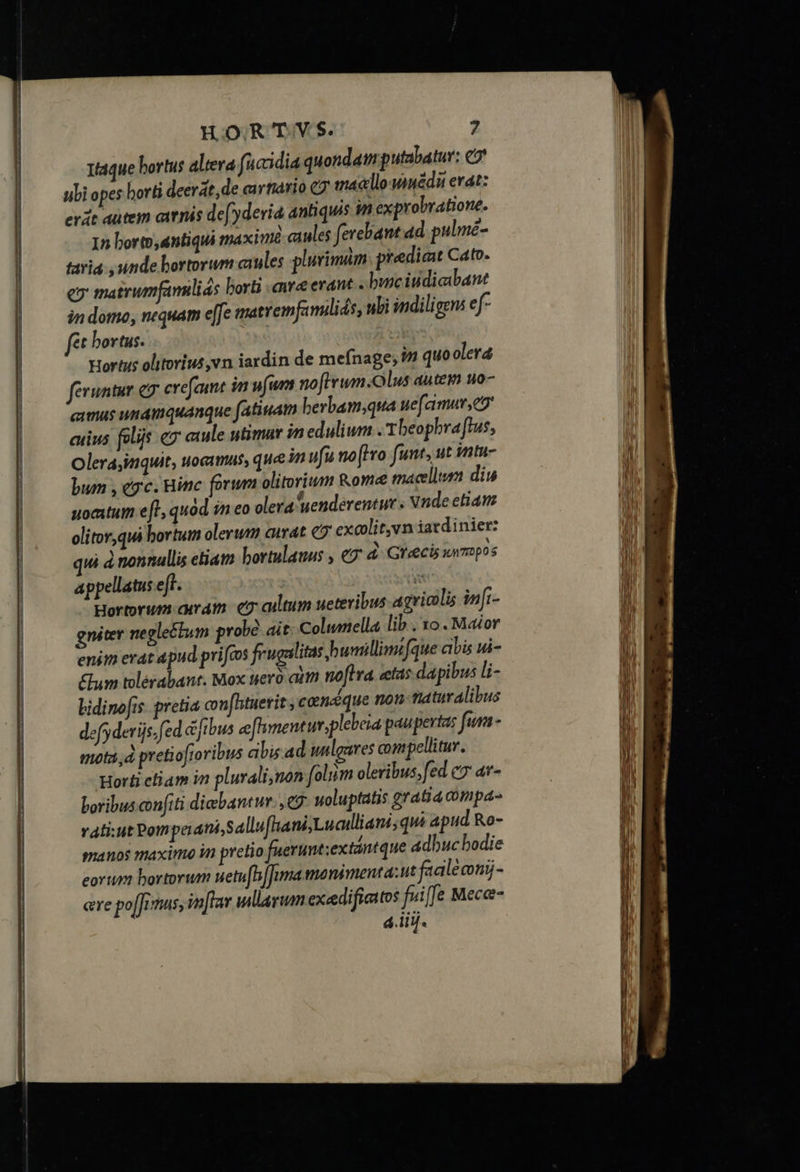 HORTVS. 7
Itaque hortus altera succidia quondam putabatur: &
ubi opes horti deerãt, de carnario & macello uiuẽdũ erat:
erãt autem carnis desyderia antiquis in exprobratione.
In horto, antiqui maximè caules serebant ad pulmẽ-
taria, unde hortorum caules plurimùm prædicat Cato.
& matrumfamiliâs horti curæ erant. hinc iudicabant
in domo, nequam esse matremfamiliâs, ubi indiligens es-
set hortus.
Hortus olitorius, vn iardin de mesnage, in quo olera
seruntur & crescunt in usum nostrum. Olus autem uo-
camus unamquanque satiuam herbam, qua uescimur, &
cuius folijs & caule utimur in edulium. Theophrastus,
Olera, inquit, uocamus, quæ in usu nostro sunt, ut intu-
bum, &c. Hinc forum olitorium Romæ macellum diu
uocatum est, quòd in eo olera uenderentur. Vnde etiam
olitor, qui hortum olerum curat & excolit, vn iardinier:
qui à nonnullis etiam hortulanus, & à Græcis κηπορὸς
appellatus est.
Hortorum curam & cultum ueteribus agricolis insi-
gniter neglectum probè ait Columella lib. 10. Maior
enim erat apud priscos frugalitas, humillimisque cibis ui-
ctum tolerabant. Mox uerò cùm nostra ætas dapibus li-
bidinosis pretia constituerit, cœnæque non naturalibus
desyderijs, sed cẽsibus æstimentur, plebeia paupertas sum-
mota, à pretiosioribus cibis ad uulgares compellitur.
Horti etiam in plurali, non solùm oleribus, sed & ar-
boribus consiti dicebantur, & uoluptatis gratia compa-
rati: ut Pompeiani, Sallustiani, Luculliani, qui apud Ro-
manos maximo in pretio fuerunt: extántque adhuc hodie
eorum hortorum uetustissima monimenta: ut facilè conij-
cere possimus, instar uillarum exædificatos fuisse Mecœ-
a.iij.